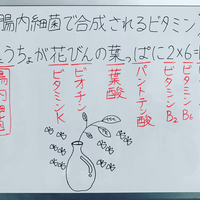 腸内細菌で合成されるビタミン
うちょが花びんの葉っぱに2×6=
腸内細菌
ビタミンK
ビオチン
葉酸
パントテン酸
ビタミンB₂
ビタミンB₆